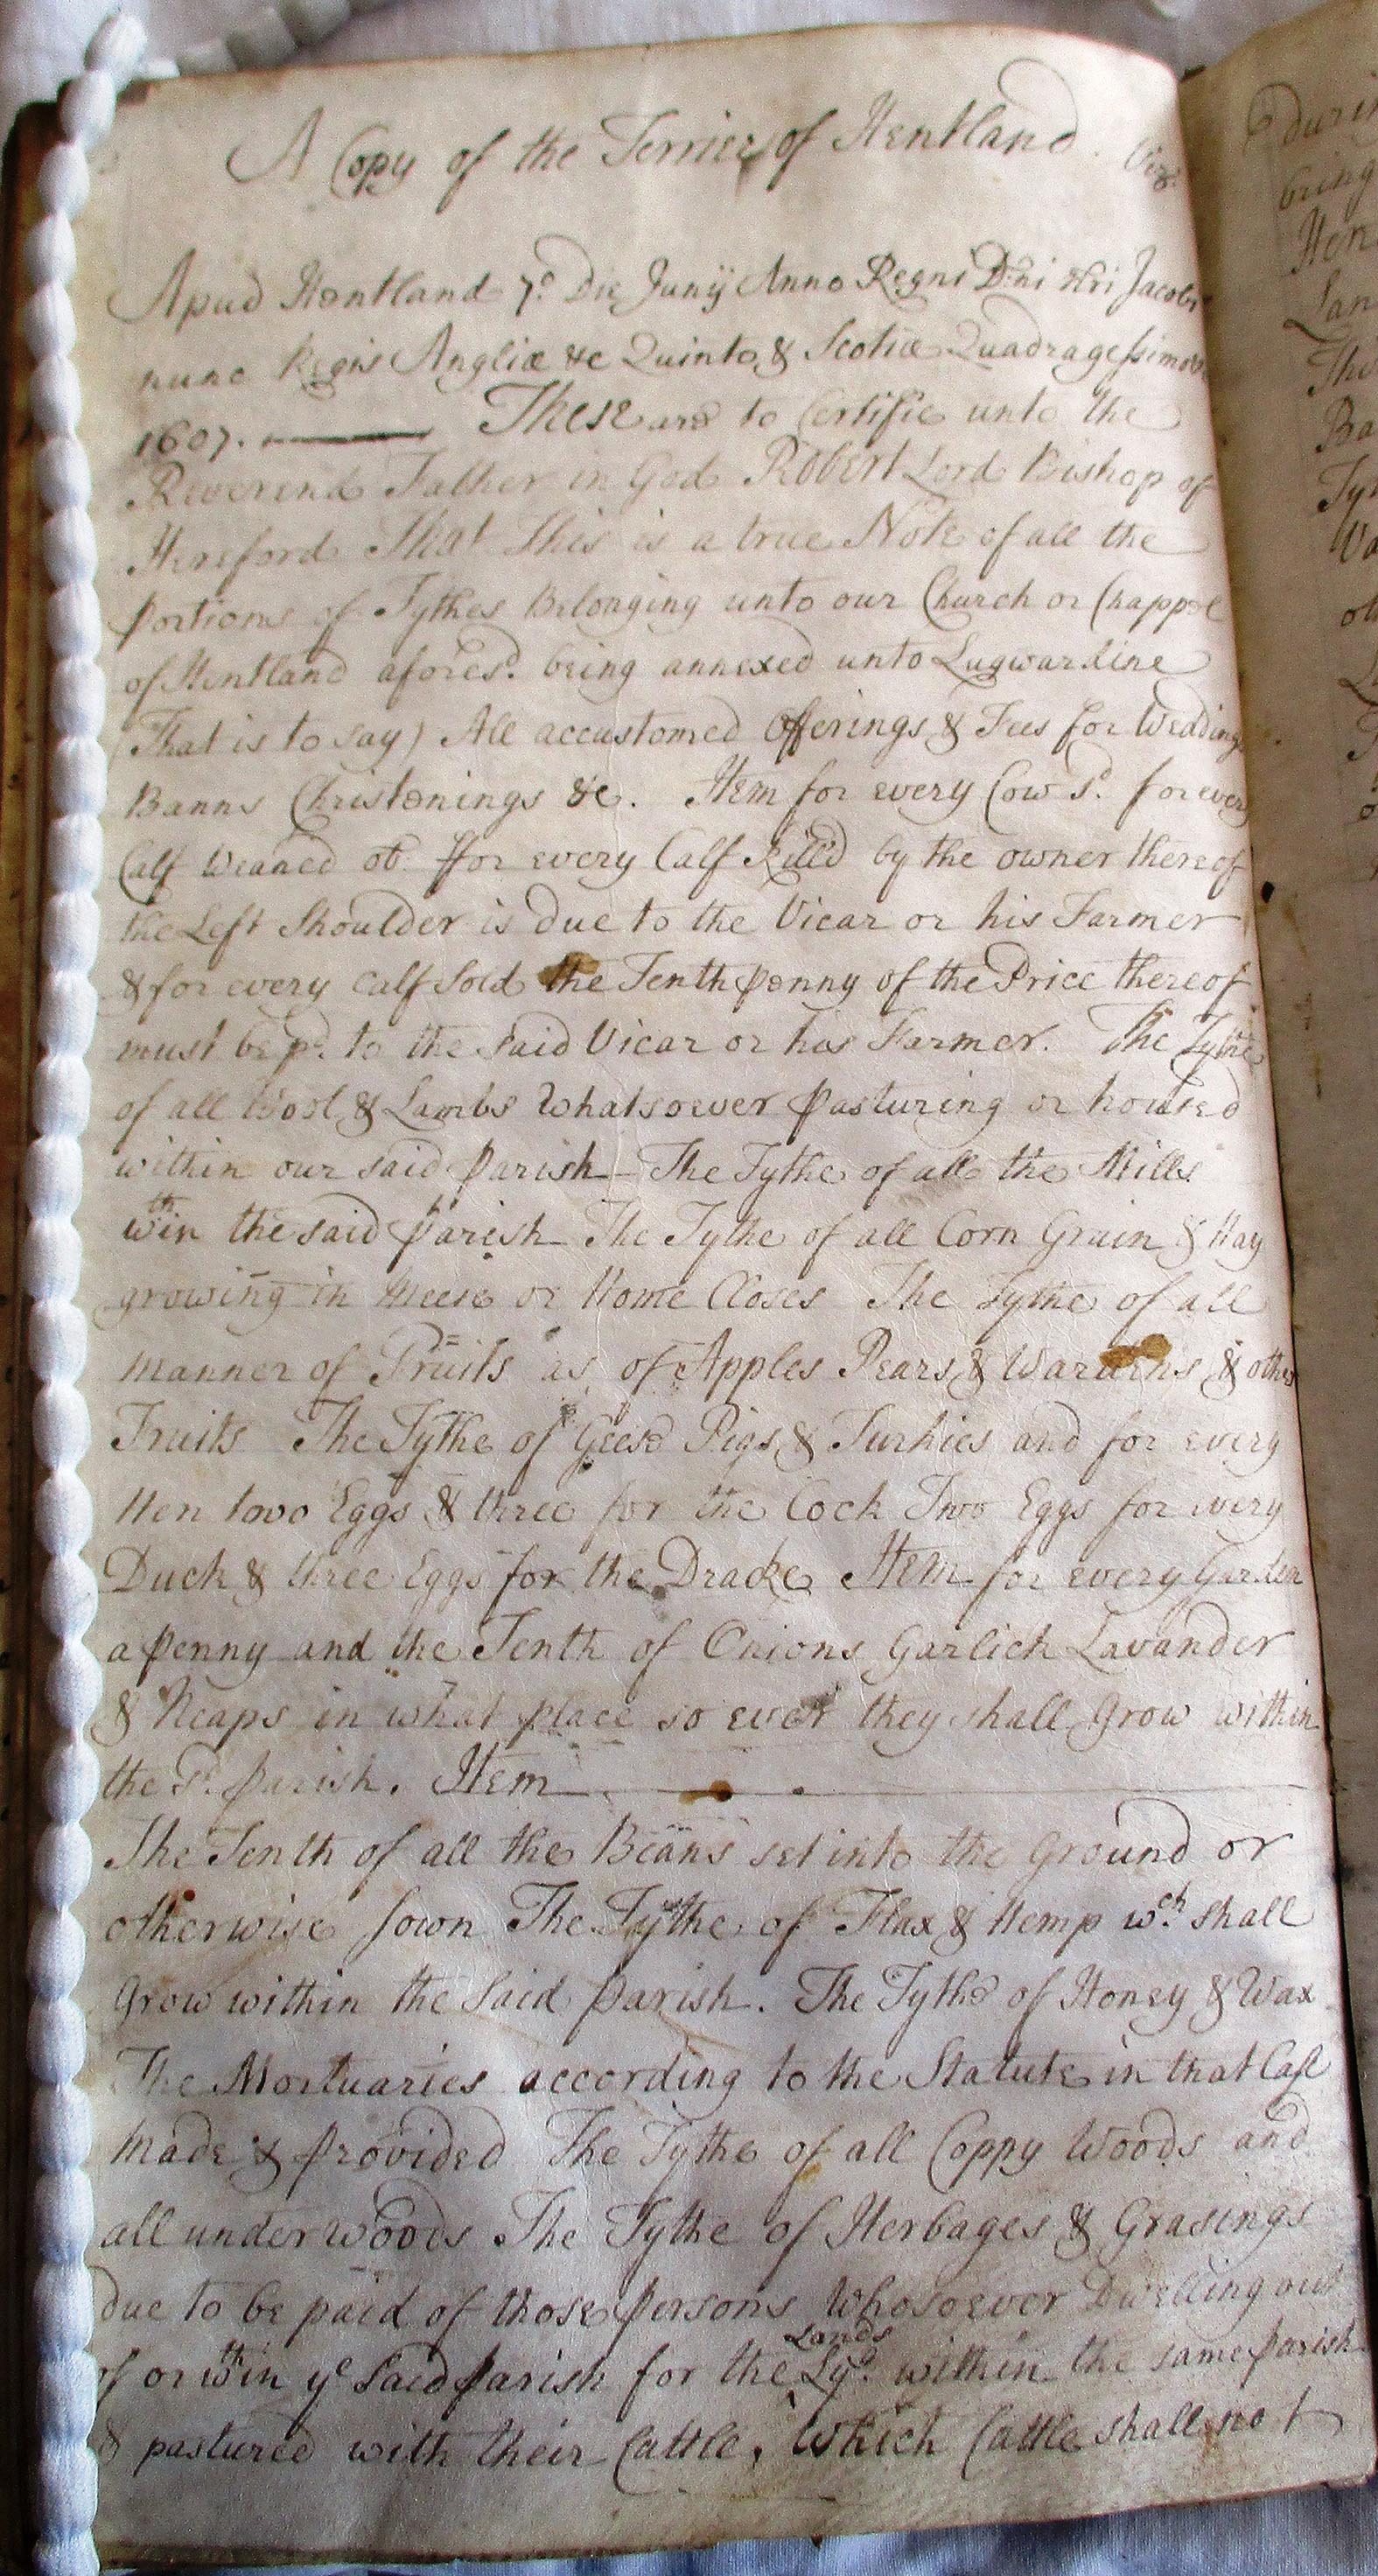 A Copy of the Terrier of Hentland. Viz:
Apud Hentland 7o. Die Junij Anno Regni Dni Nri Jacobi
nunc Regis Angliæ &c Quinto & Scotiæ Quadragessimo
1607. These are to Certifie unto the
Reverend Father in God Robert Lord Bishop of
Hereford That this is a true Note of all the
portions of Tythes Belonging unto our Church or Chappel
of Hentland afores'd. being annexed unto Lugwardine
(That is to say) All accustomed Offerings & Fees for Weddings
Banns Christenings &c. Item for every Cow 1d. for every
Calf Weaned ob. ffor every Calf Kill'd by the owner thereof
the Left Shoulder is due to the Vicar or his Farmer
& for every Calf Sold the Tenth penny of the Price thereof
must be pd. to the said Vicar or his Farmer. The Tythe
of all Wool & Lambs Whatsoever pasturing or housed
within our said parish The Tythe of all the Mills
wthin the said parish The Tythe of all Corn Grain & Hay
growing in Meese or Home Closes The Tythe of all
manner of Fruits as of Apples Pears & Wardens & other
Fruits The Tythe of Geese Pigs & Turkies and for every
Hen two Eggs & three for the Cock Two Eggs for every
Duck & three Eggs for the Drake Item for every Garden
a penny and the Tenth of Onions Garlick Lavander
& Neaps in what place so ever they shall Grow within
the sd. parish. Item
The Tenth of all the Beans set into the Ground or
otherwise sown The Tythe of Flax & Hemp wch. shall
Grow within the Said parish. The Tythe of Honey & Wax
The Mortuaries according to the Statute in that Case
Made & provided The Tythe of all Coppy Woods and
all underwoods The Tythe of Herbages & Grasings
due to be paid of those persons Whosoever Dwelling out
Lands
of or wthin ye Said parish for the within the same parish
& pastured with their Cattle, Which Cattle shall not